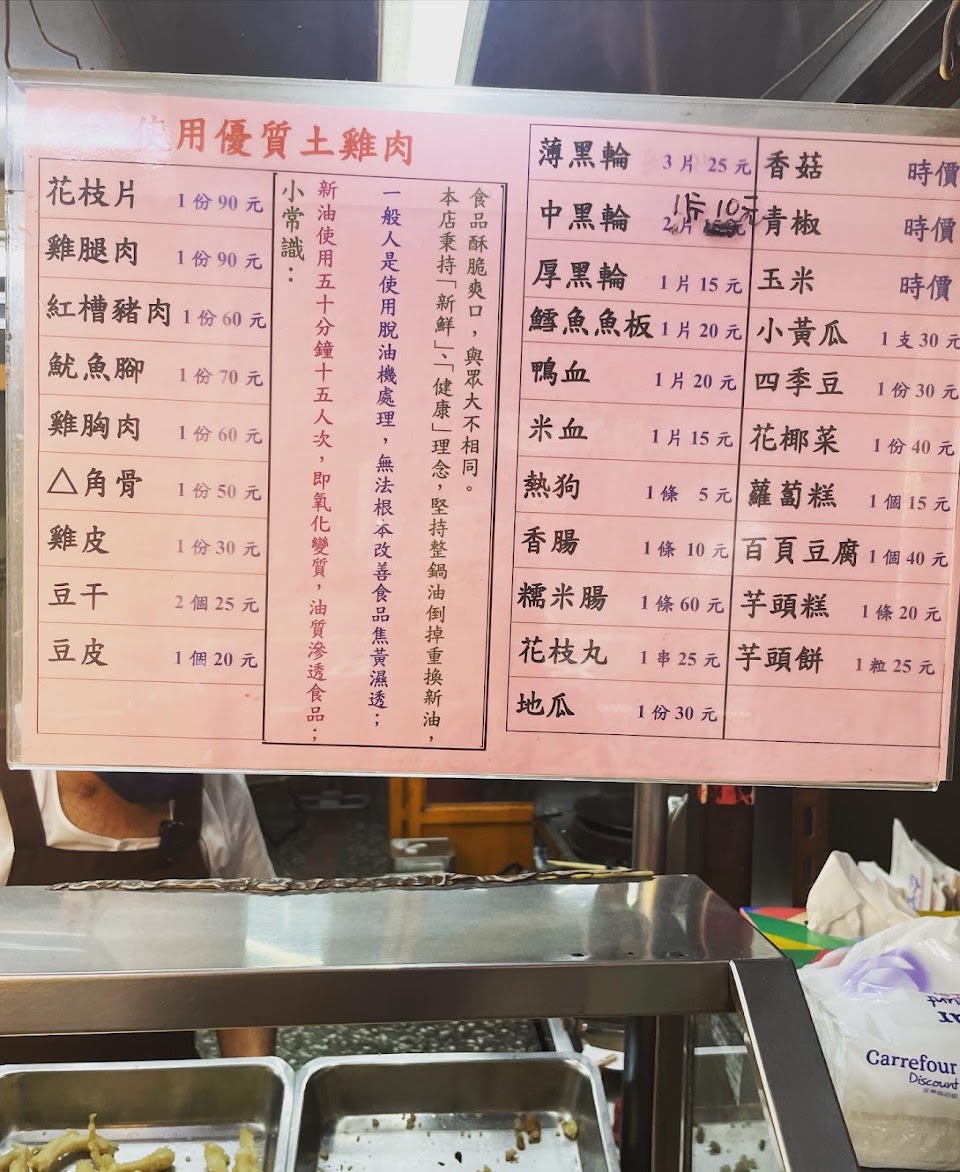 使用優質土雞肉
花枝片 1份90元
雞腿肉 1份90元
紅槽豬肉 1份60元
魷魚腳 1份70元
雞胸肉 1份60元
△角骨 1份50元
雞皮 1份30元
豆干 2個25元
豆皮 1個20元
小常識：
新油使用五十分鐘十五人次，即氧化變質，油質滲透食品；
一般人是使用脫油機處理，無法根本改善食品焦黃濕透；
本店秉持「新鮮」、「健康」理念，堅持整鍋油倒掉重換新油，
食品酥脆爽口，與眾大不相同。
薄黑輪 3片25元
中黑輪 2片 1片10元
厚黑輪 1片15元
鱈魚魚板 1片20元
鴨血 1片20元
米血 1片15元
熱狗 1條 5元
香腸 1條 10元
糯米腸 1條60元
花枝丸 1串25元
地瓜 1份30元
香菇 時價
青椒 時價
玉米 時價
小黃瓜 1支30元
四季豆 1份30元
花椰菜 1份40元
蘿蔔糕 1個15元
百頁豆腐 1個40元
芋頭糕 1條20元
芋頭餅 1粒25元
Carrefour
Discount